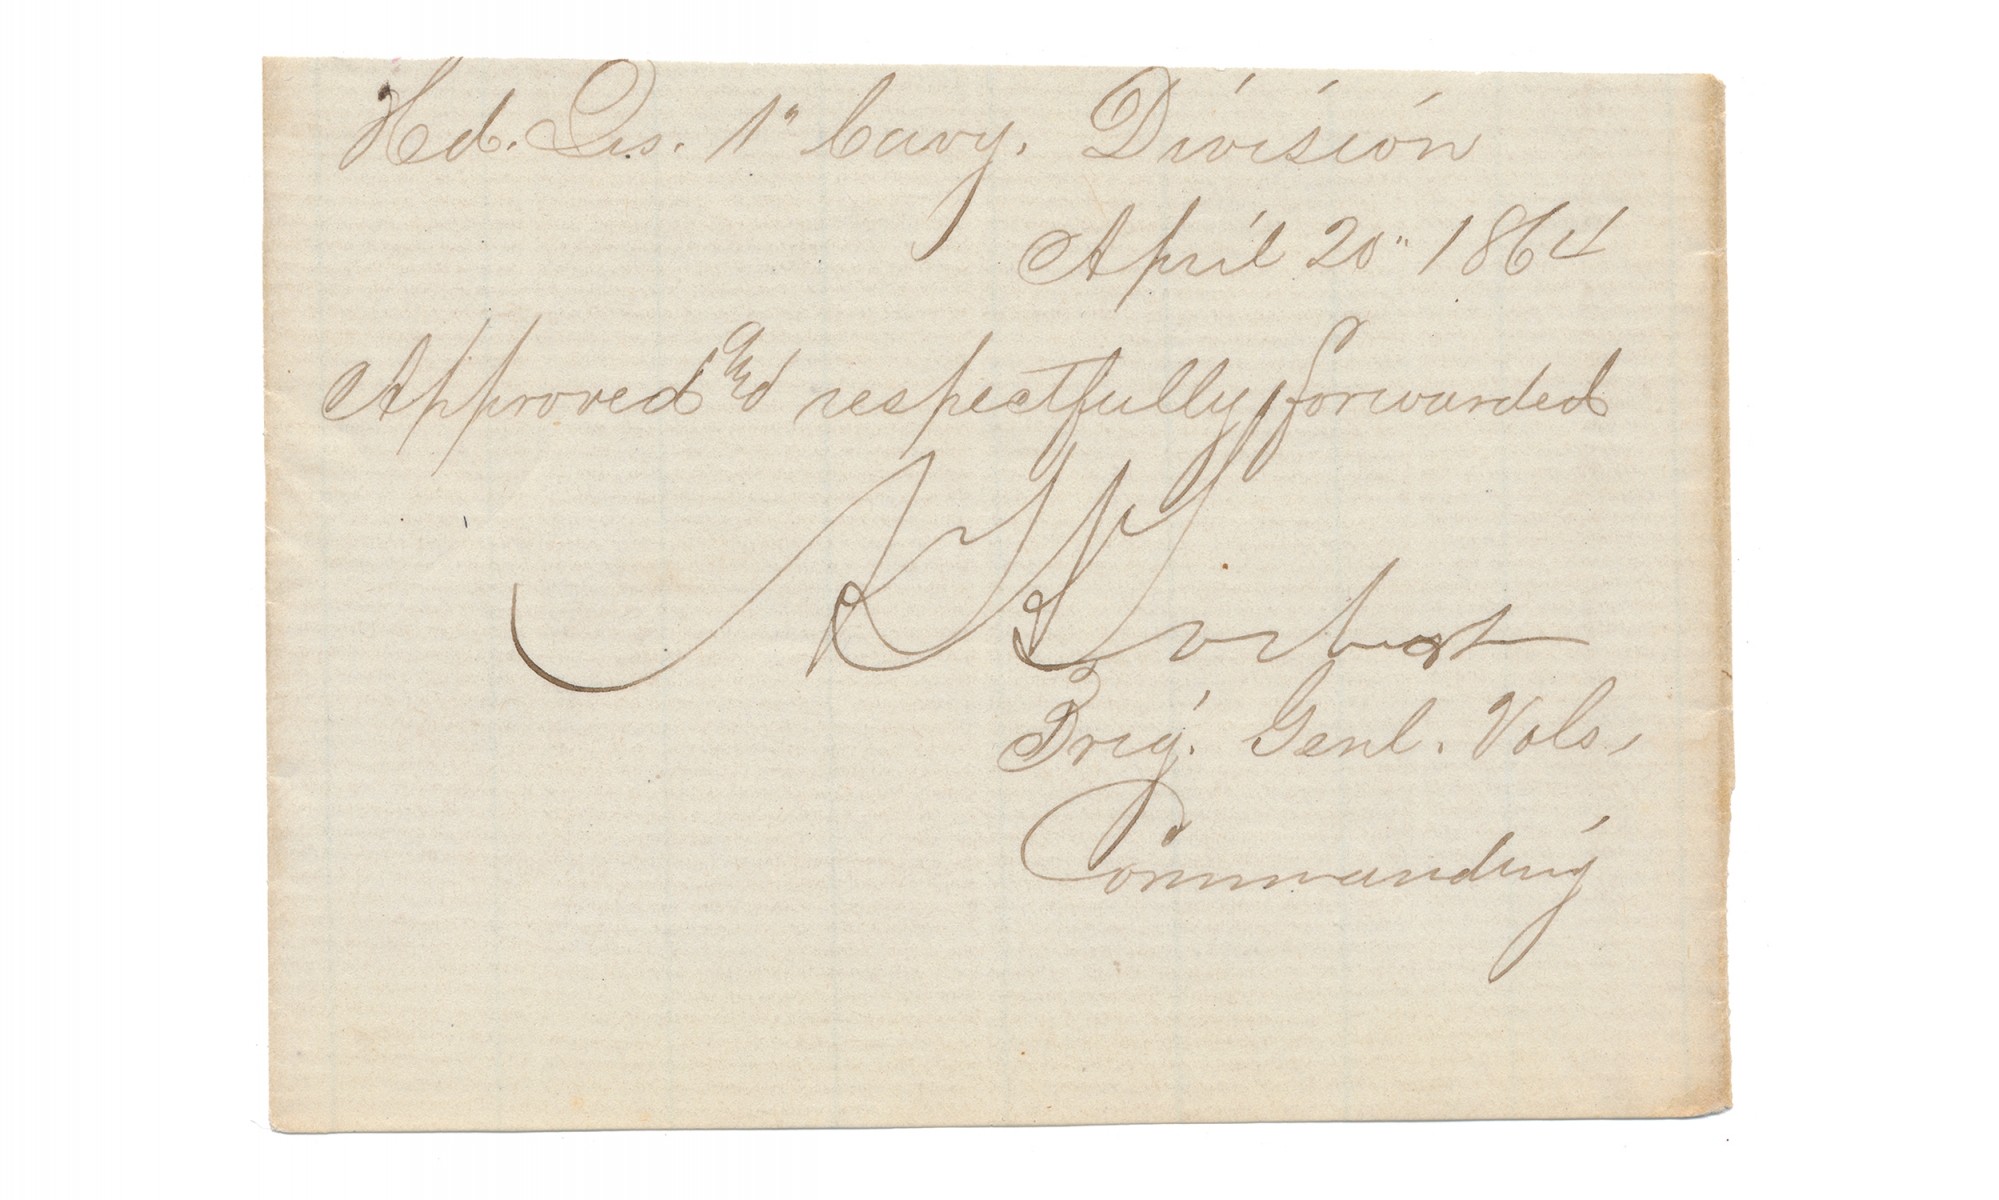 Hd. Qrs. 1" Cavy. Division
April 20" 1864
Approved and respectfully forwarded
Torbert
Brig. Genl. Vols.
Commanding